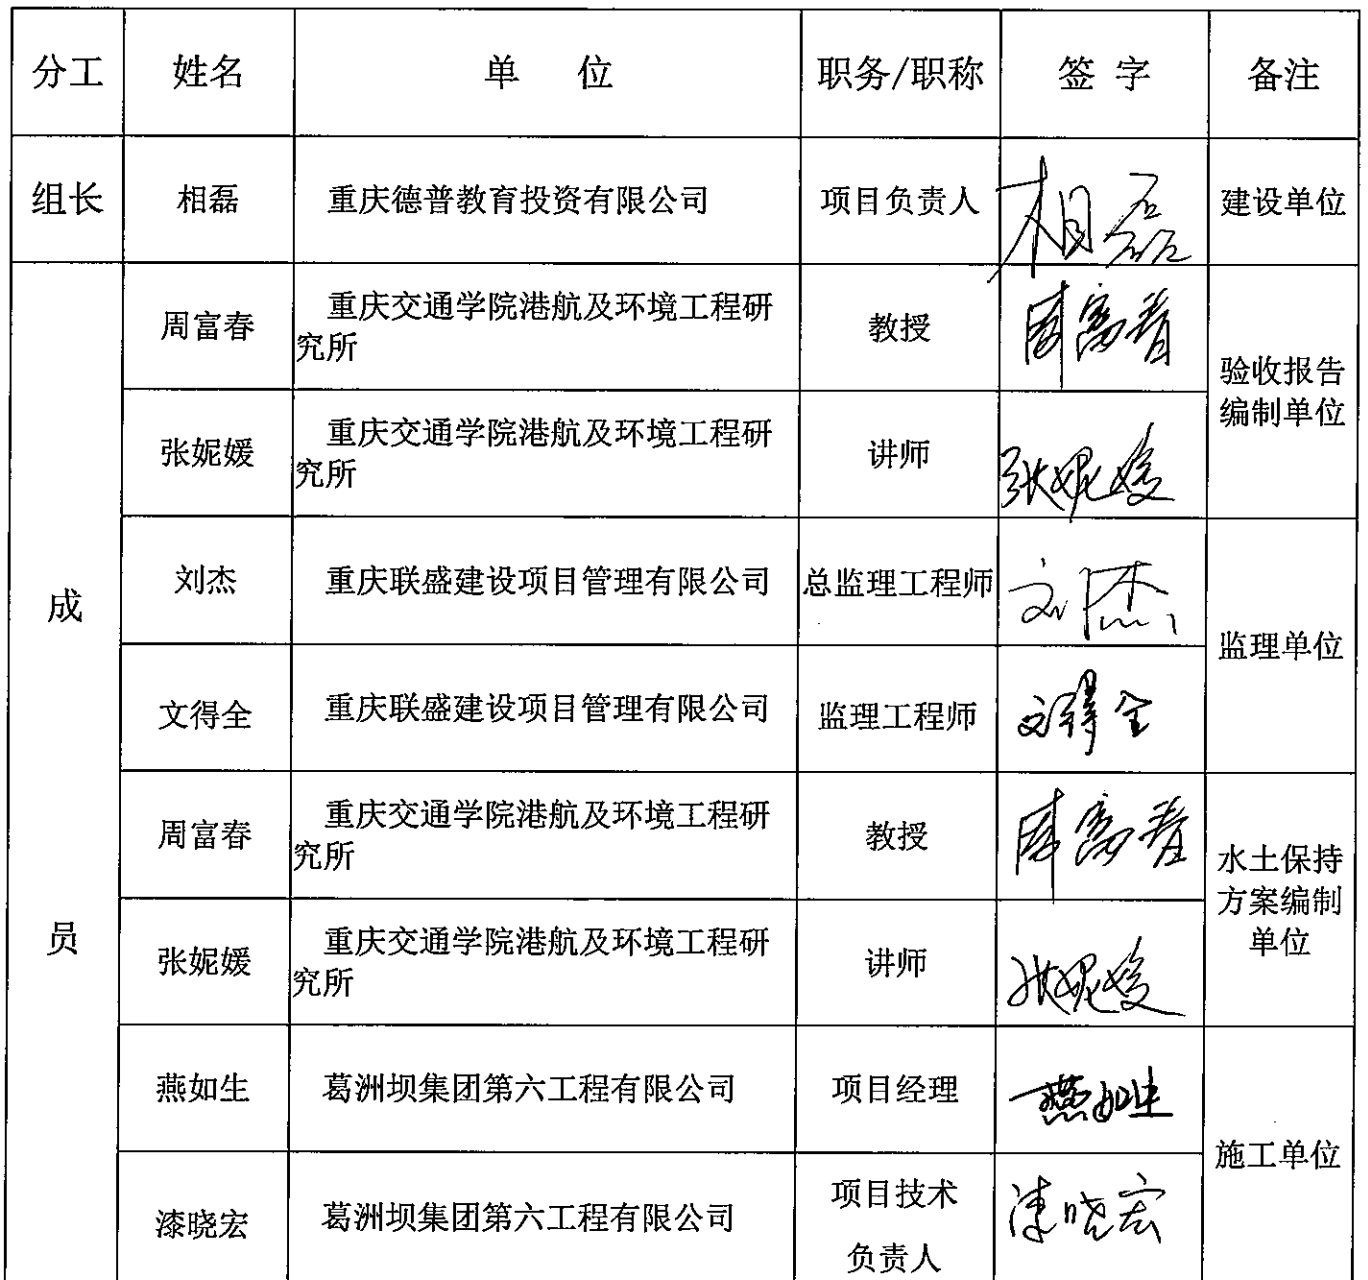 分工 姓名 单 位 职务/职称 签 字 备注
组长 相磊 重庆德普教育投资有限公司 项目负责人 相磊 建设单位
成
员
周富春 重庆交通学院港航及环境工程研
究所 教授 周富春
验收报告
编制单位
张妮媛 重庆交通学院港航及环境工程研
究所 讲师 张妮媛
刘杰 重庆联盛建设项目管理有限公司 总监理工程师 刘杰
监理单位
文得全 重庆联盛建设项目管理有限公司 监理工程师 文得全
周富春 重庆交通学院港航及环境工程研
究所 教授 周富春
水土保持
方案编制
单位
张妮媛 重庆交通学院港航及环境工程研
究所 讲师 张妮媛
燕如生 葛洲坝集团第六工程有限公司 项目经理 燕如生
施工单位
漆晓宏 葛洲坝集团第六工程有限公司 项目技术
负责人 漆晓宏